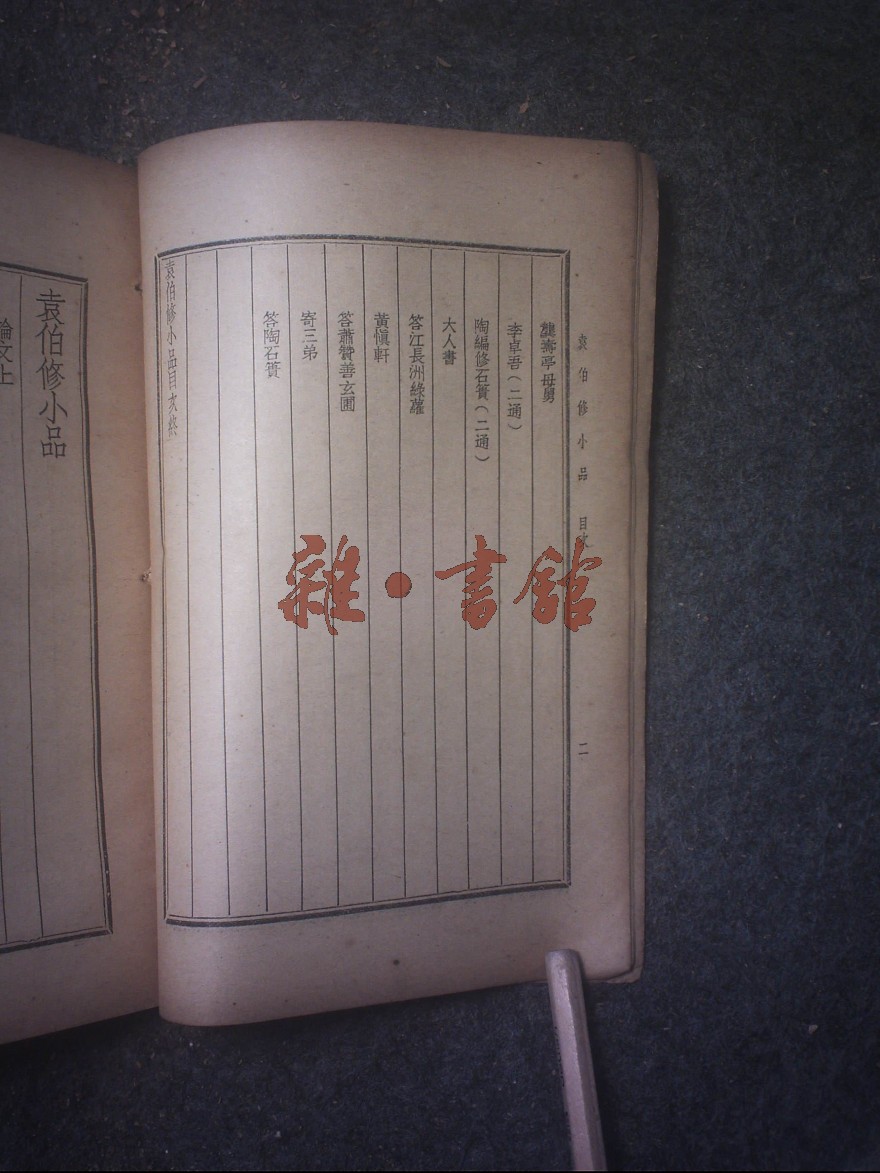 袁伯修小品 目次 二
龔壽亭母舅
李卓吾(二通)
陶編修石簣(二通)
大人書
答江長洲綠蘿
黃愼軒
答蕭贊善玄圃
寄三弟
答陶石簣
袁伯修小品目次終
袁伯修小品
論文上
雜·書館